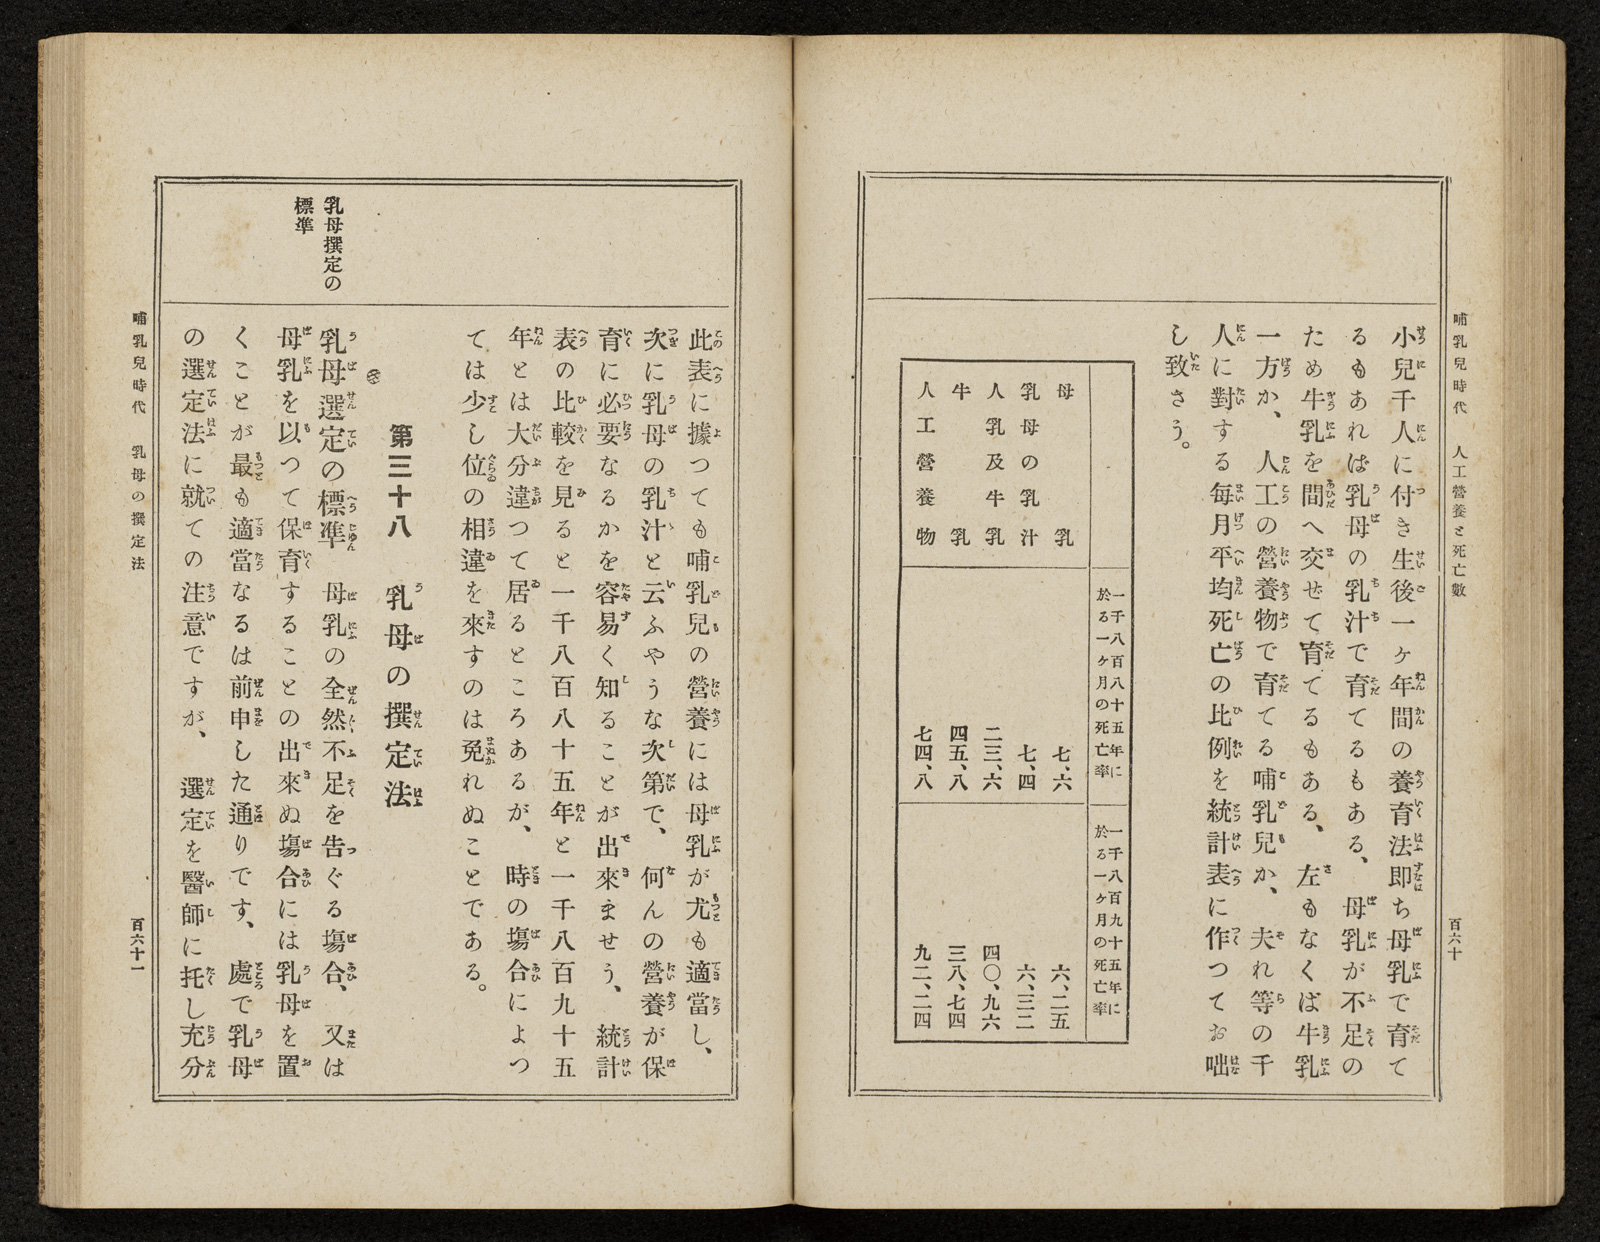 哺乳兒時代　人工營養と死亡數　百六十
小兒千人に付き生後一ヶ年間の養育法即ち母乳で育て
るもあれば乳母の乳汁で育てるもある、母乳が不足の
ため牛乳を間へ交せて育てるもある、左もなくば牛乳
一方か、人工の營養物で育てる哺乳兒か、夫れ等の千
人に對する毎月平均死亡の比例を統計表に作つてお咄
し致さう。
一千八百八十五年に於る一ヶ月の死亡率
一千八百九十五年に於る一ヶ月の死亡率
母乳　七、六　六、二五
乳母の乳汁　七、四　六、三二
人乳及牛乳　二三、六　四〇、九六
牛乳　四五、八　三八、七四
人工營養物　七四、八　九二、二四
此表に據つても哺乳兒の營養には母乳が尤も適當し、
次に乳母の乳汁と云ふやうな次第で、何んの營養が保
育に必要なるかを容易く知ることが出來ませう、統計
表の比較を見ると一千八百八十五年と一千八百九十五
年とは大分違つて居るところあるが、時の場合によつ
ては少し位の相違を來すのは免れぬことである。
第三十八　乳母の撰定法
乳母撰定の
標準
乳母選定の標準　母乳の全然不足を告ぐる場合、又は
母乳を以つて保育することの出來ぬ場合には乳母を置
くことが最も適當なるは前申した通りです、處で乳母
の選定法に就ての注意ですが、選定を醫師に托し充分
哺乳兒時代　乳母の撰定法　百六十一